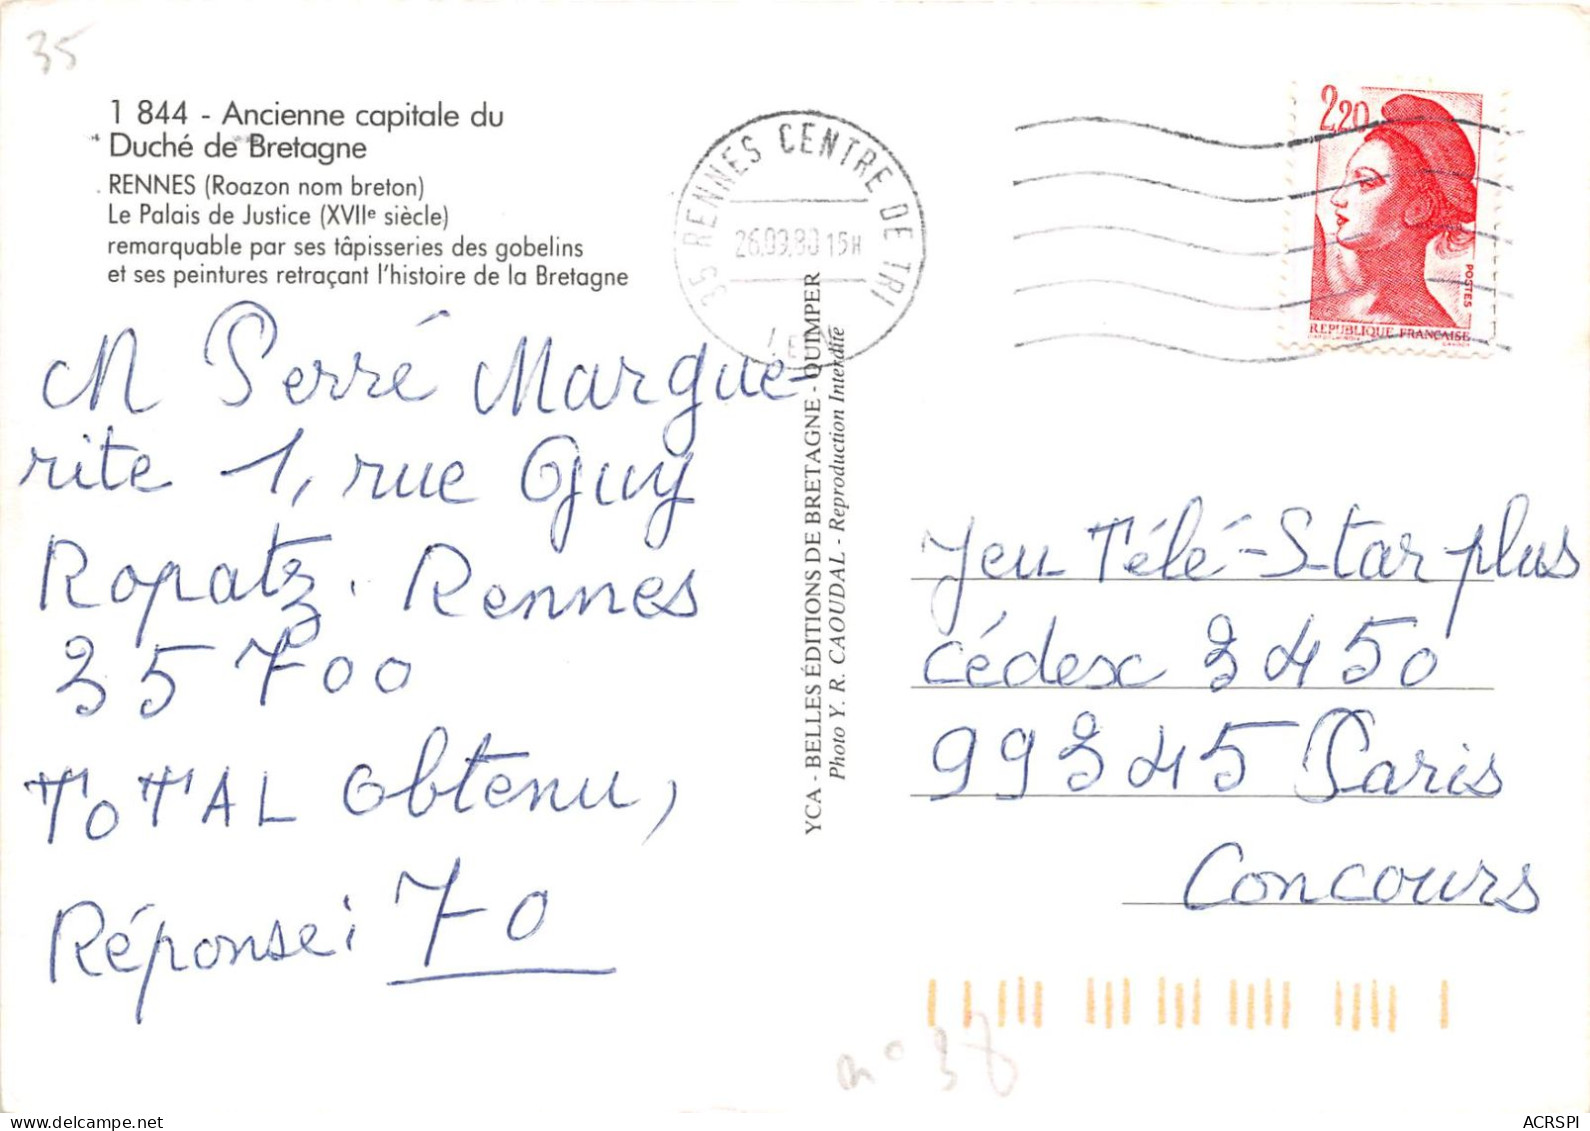 35
1 844 - Ancienne capitale du
Duché de Bretagne
RENNES (Roazon nom breton)
Le Palais de Justice (XVIIe siècle)
remarquable par ses tâpisseries des gobelins
et ses peintures retraçant l'histoire de la Bretagne
35 RENNES CENTRE DE TRI
2,20
POSTES
REPUBLIQUE FRANCAISE
YCA - BELLES ÉDITIONS DE BRETAGNE - QUIMPER
Photo Y. R. CAOUDAL - Reproduction Interdite
M Perré Margue-
rite 1, rue Guy
Ropatz. Rennes
35700
TOTAL obtenu,
Réponse: 70
Jeu Télé-Star plus
cédex 3450
99345 Paris
Concours
n° 38
ACRSPI